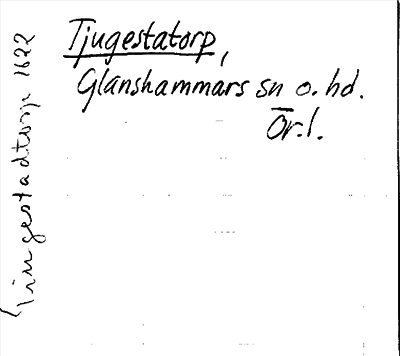 Tjugestatorp,
Glanshammars sn o. hd.
Ör. l.
Tiugestadtorp 1622